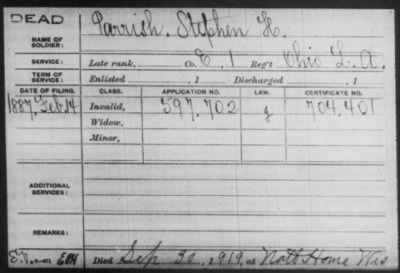 DEAD
NAME OF SOLDIER: Parrish, Stephen H.
SERVICE: Late rank, Co. E, 1 Reg't Ohio L. A.
TERM OF SERVICE: Enlisted , 1 Discharged , 1
DATE OF FILING. CLASS. APPLICATION NO. LAW. CERTIFICATE NO.
1887, Feb. 14 Invalid, 597.702 g 704.401
Widow,
Minor,
ADDITIONAL SERVICES:
REMARKS:
Died Sep 30, 1919, at Natl Home Wis